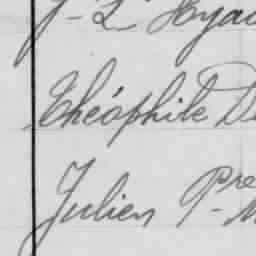 J-L Hya
Théophile D
Julien Pre